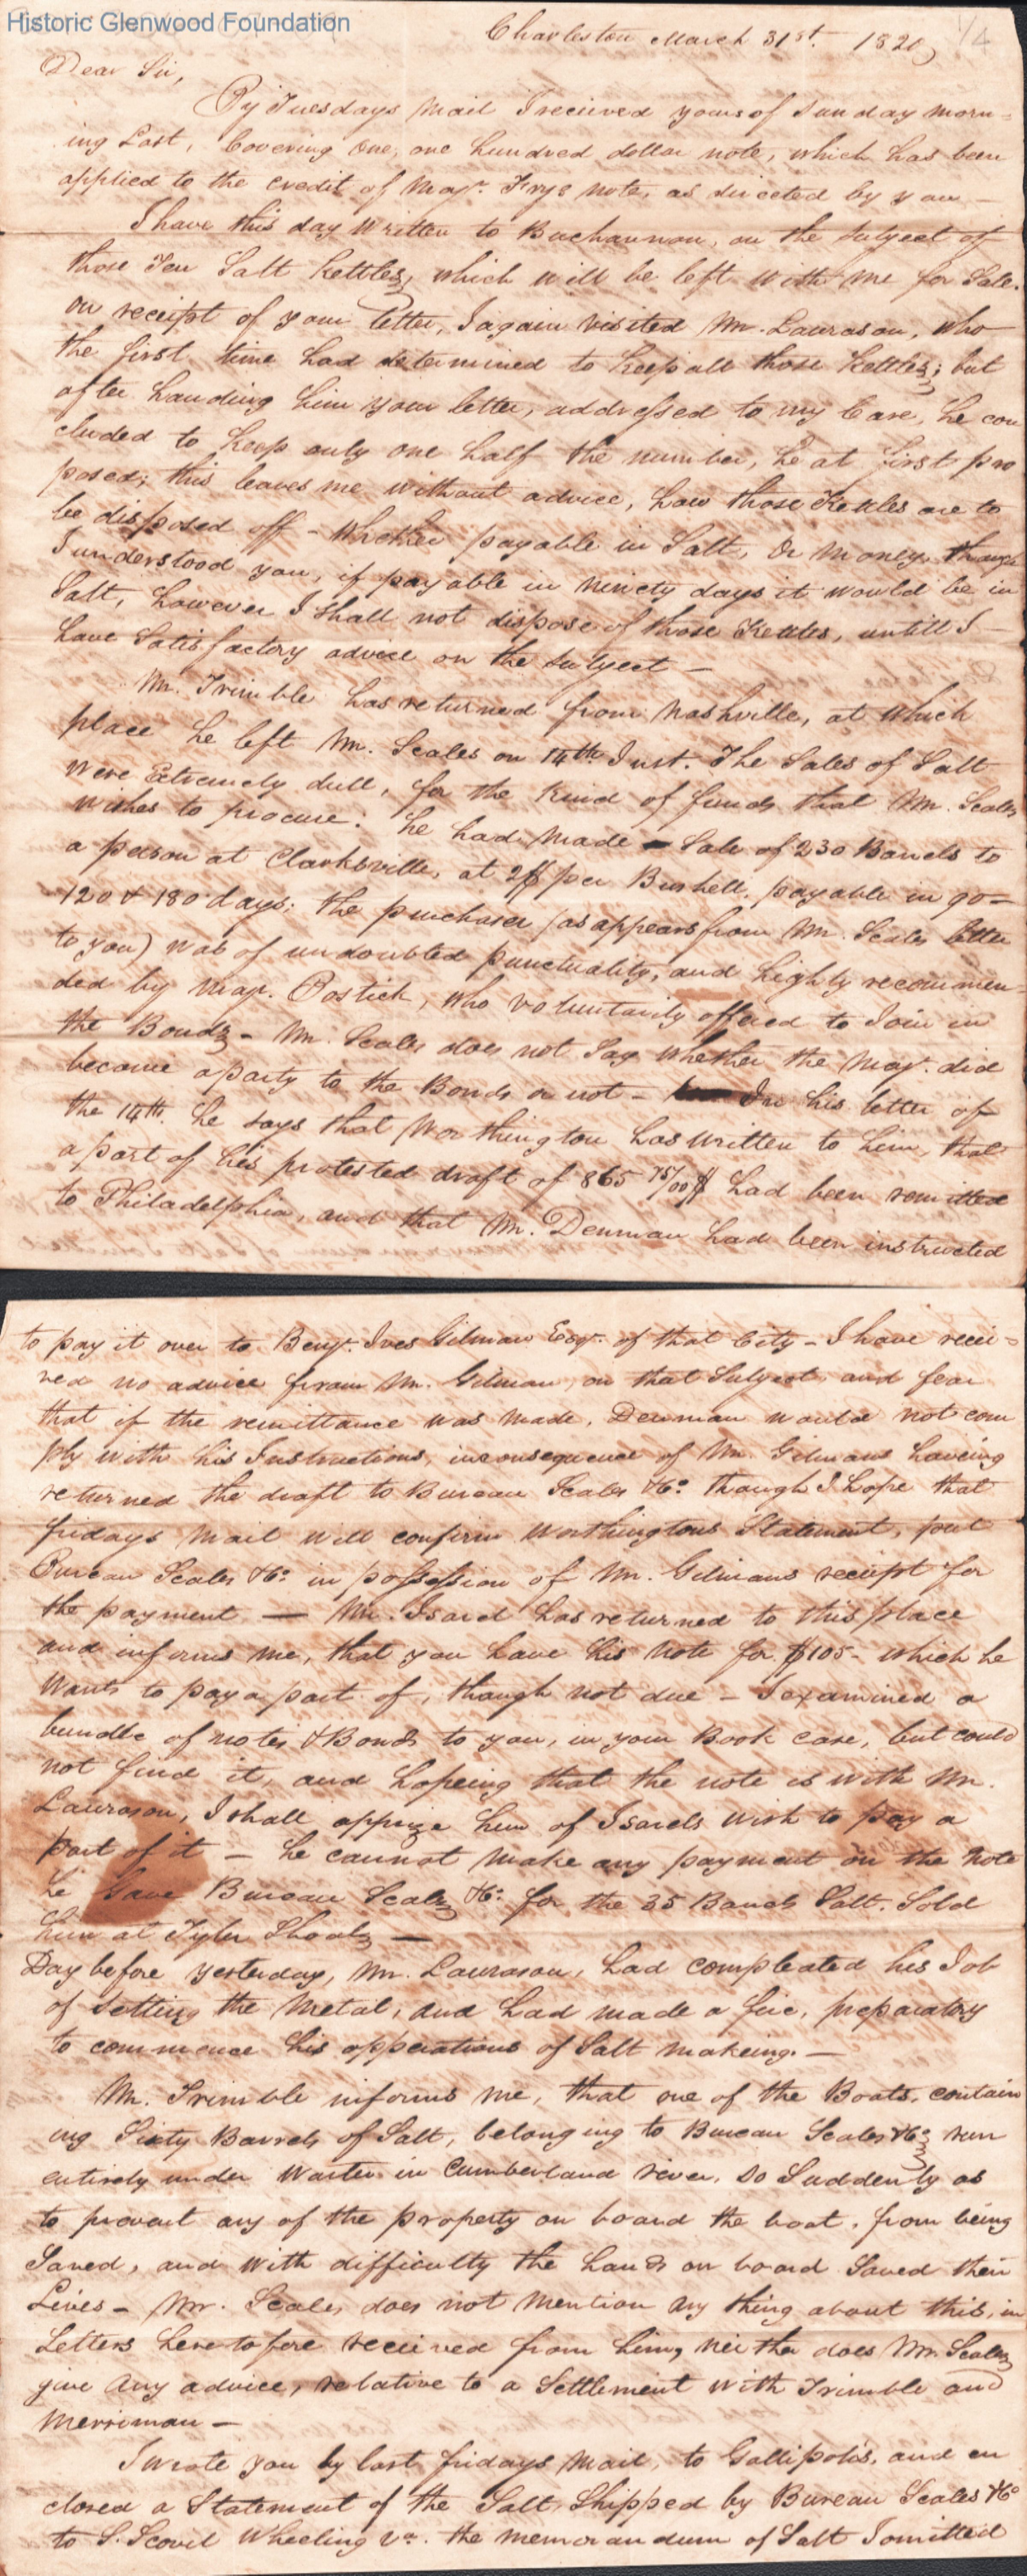 Historic Glenwood Foundation
1/4
Charleston March 31st. 1820
Dear Sir,
By Tuesdays Mail I recieved yours of Sunday morn=
ing Last, Covering One, one hundred dollar note, which has been
applied to the credit of Majr. Frys note, as directed by you —
I have this day Written to Buchannon, on the Subject of
those Ten Salt Kettles, which will be left with me for Sale.
on receipt of your letter, I again visited Mr. Laurason, who
the first time had determined to Keep all those Kettles; but
after handing him your letter, addressed to my Care, he con
cluded to Keep only one half the number, he at first pro
posed; this leaves me without advice, how those Kettles are to
be disposed off - Whether payable in Salt, Or Money, though
I understood you, if payable in Ninety days it would be in
Salt, however I shall not dispose of those Kettles, untill I —
have Satisfactory advice on the Subject —
Mr. Trimble has returned from Nashville, at which
place he left Mr. Scales on 14th Inst. The Sales of Salt
were Extremely dull, for the Kind of funds that Mr. Scales
wishes to procure: he had made Sale of 230 Barrels to
a person at Clarksville, at 2$ per Bushell, payable in 90=
120 & 180 days; the purchaser (as appears from Mr. Scales letter
to you) was of undoubted punctuality, and highly recommen=
ded by Maj. Postick, who voluntarily offered to Join in
the Bonds - Mr. Scales does not Say whether the Majr. did
become a party to the Bonds or not - In his letter of
the 14th. he says that Worthington has written to him, that
a part of his protested draft of 865 75/00$ had been remitted
to Philadelphia, and that Mr. Denman had been instructed
to pay it over to Benjn. Ives Gilman Esqr. of that City - I have recei=
ved no advice from Mr. Gilman, on that Subject, and fear
that if the remittance was made, Denman would not com
ply with his Instructions, inconsequence of Mr. Gilmans haveing
returned the draft to Bureau Scales &Co. though I hope that
fridays Mail will confirm Worthingtons Statement, put
Bureau Scales &Co. in possession of Mr. Gilmans receipt for
the payment — Mr. Isard has returned to this place
and informs me, that you have his Note for $105- which he
wants to pay a part of, though not due - I examined a
bundle of notes & Bonds to you, in your Book Case, but could
not find it, and hopeing that the note is with Mr.
Laurason, I shall apprize him of Isards wish to pay a
part of it - he cannot make any payment on the Note
he Gave Bureau Scales &Co. for the 35 Barrels Salt. Sold
him at Tyler Shoals —
Day before yesterday, Mr. Laurason, had compleated his Job
of Setting the Metal, and had made a fire, preparatory
to commence his opperations of Salt makeing. —
Mr. Trimble informs me, that one of the Boats, contain
ing Sixty Barrels of Salt, belonging to Bureau Scales &Co. run
entirely under Warter in Cumberland river, So Suddenly as
to prevent any of the property on board the boat, from being
Saved, and with difficulty the hands on board Saved their
Lives - Mr. Scales does not Mention any thing about this, in
Letters heretofore received from him, neither does Mr. Scales
give any advice, relative to a Settlement with Trimble and
Merriman —
I wrote you by last fridays Mail, to Gallipolis, and en
closed a Statement of the Salt, Shipped by Bureau Scales &Co
to S. Scovil Wheeling Va. the memorandum of Salt I omitted